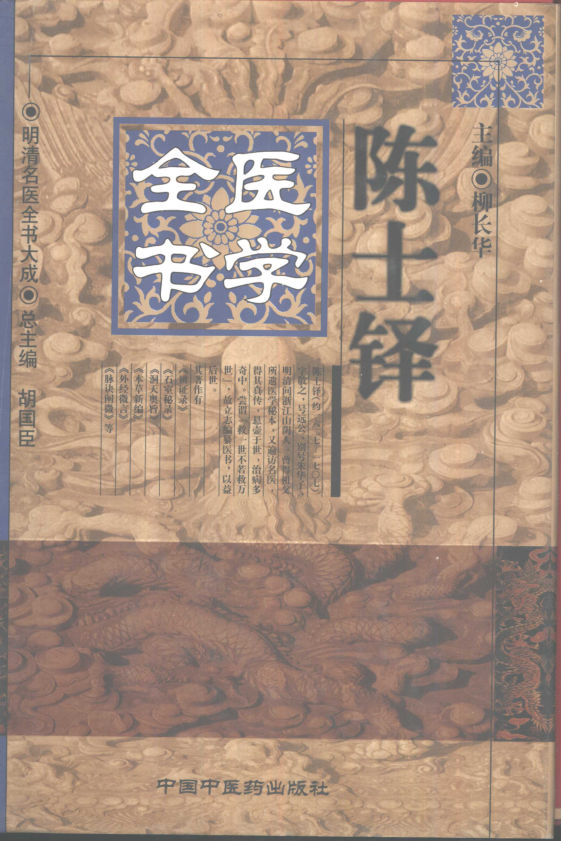 主编◉柳长华
陈士铎
医学
全书
陈士铎（约一六二七～一七〇七）
字敬之，号远公，别号朱华子，
明清间浙江山阴人。曾得祖父
所遗医学秘本，又遍访名医，
得其真传，悬壶于世，治病多
奇中。尝谓“救一世不若救万
世”，故立志编纂医书，以益
后世。
其著作有
《辨证录》
《石室秘录》
《洞天奥旨》
《本草新编》
《外经微言》
《脉诀阐微》等
◉明清名医全书大成◉总主编 胡国臣
中国中医药出版社